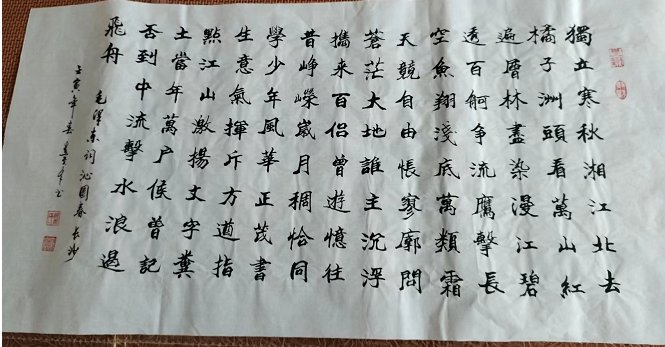 獨立寒秋湘江北去
橘子洲頭看萬山紅
遍層林盡染漫江碧
透百舸争流鷹擊長
空魚翔淺底萬類霜
天競自由悵寥廓問
蒼茫大地誰主沉浮
攜来百侣曾遊憶往
昔崢嶸歲月稠恰同
學少年風華正茂書
生意氣揮斥方遒指
點江山激揚文字糞
土當年萬户侯曾記
否到中流擊水浪遏
飛舟
毛澤東词沁園春長沙
壬寅年春